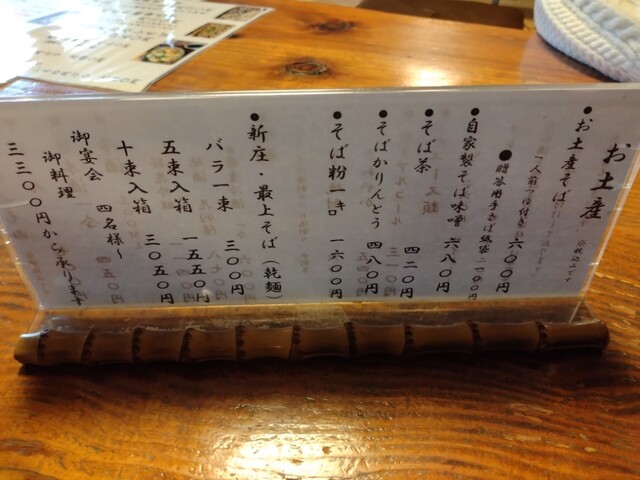 お土産
※税込みです
●お土産そば
一人前つゆ付き 六〇〇円
●贈答用手さげ紙袋 一〇〇円
●自家製そば味噌 六八〇円
●そば茶 四二〇円
●そばかりんとう 四八〇円
●そば粉一キロ 一六〇〇円
●新庄・最上そば（乾麺）
バラ一束 三〇〇円
五束入箱 一五五〇円
十束入箱 三〇五〇円
御宴会 四名様〜
御料理
三三〇〇円から承ります